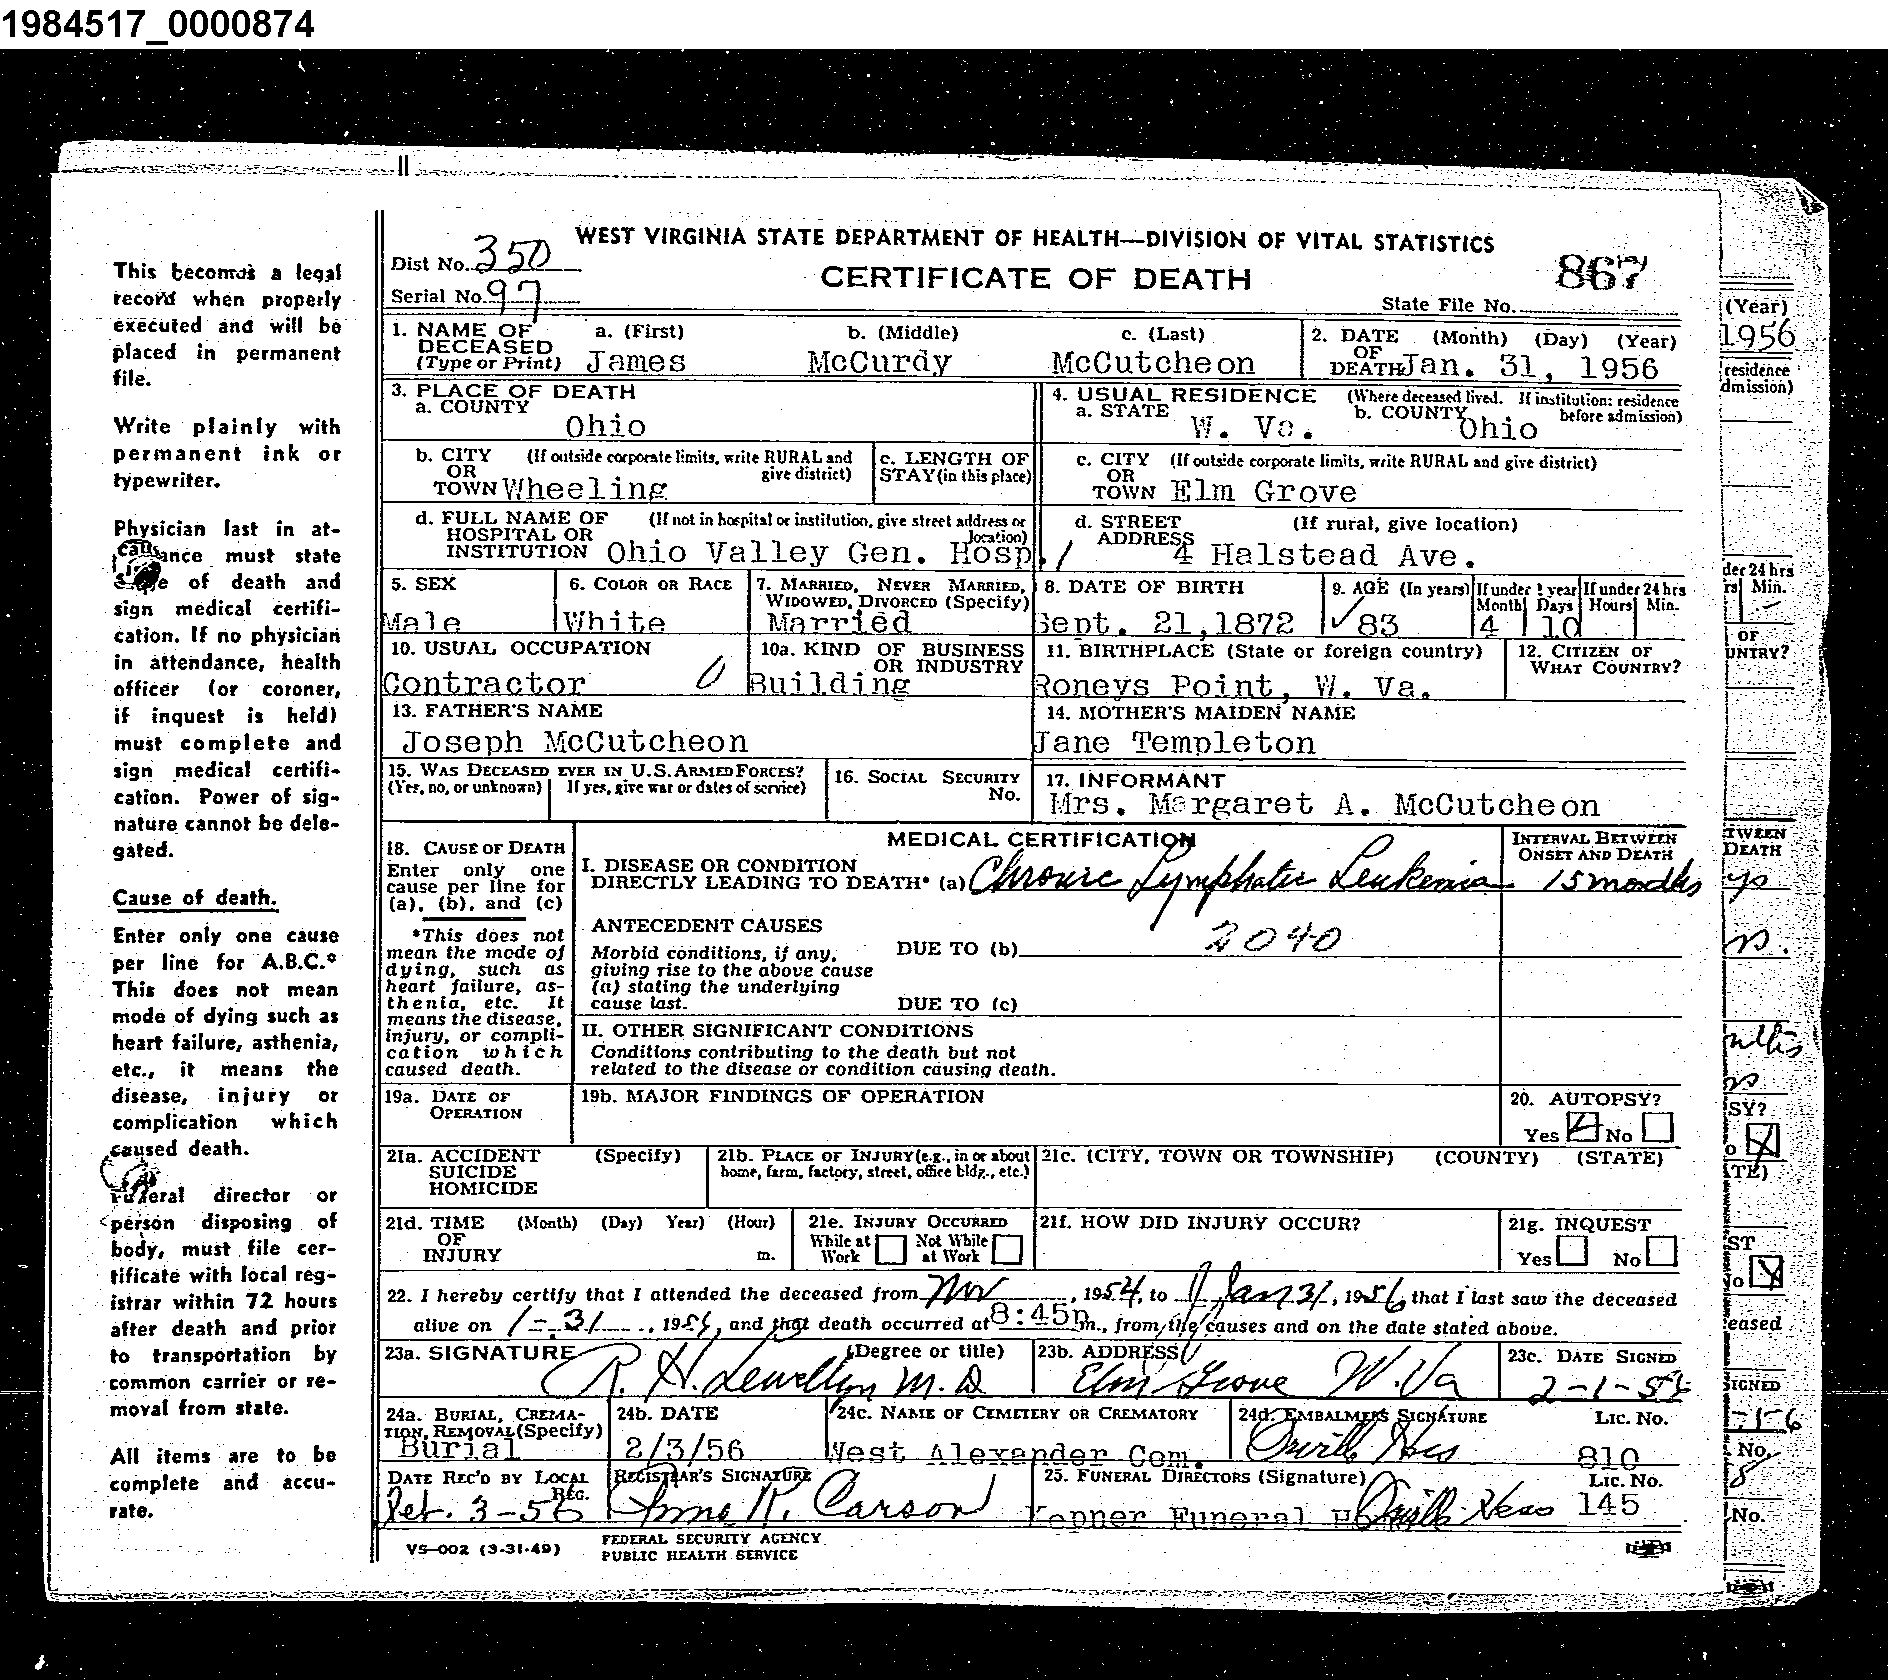 1984517_0000874
This becomes a legal
record when properly
executed and will be
placed in permanent
file.
Write plainly with
permanent ink or
typewriter.
Physician last in at-
ance must state
of death and
sign medical certifi-
cation. If no physician
in attendance, health
officer (or coroner,
if inquest is held)
must complete and
sign medical certifi-
cation. Power of sig-
nature cannot be dele-
gated.
Cause of death.
Enter only one cause
per line for A.B.C.*
This does not mean
mode of dying such as
heart failure, asthenia,
etc., it means the
disease, injury or
complication which
caused death.
Funeral director or
person disposing of
body, must file cer-
tificate with local reg-
istrar within 72 hours
after death and prior
to transportation by
common carrier or re-
moval from state.
All items are to be
complete and accu-
rate.
WEST VIRGINIA STATE DEPARTMENT OF HEALTH—DIVISION OF VITAL STATISTICS
Dist No. 350
CERTIFICATE OF DEATH
867
Serial No. 97
State File No.
1. NAME OF DECEASED (Type or Print) a. (First) James b. (Middle) McCurdy c. (Last) McCutcheon
2. DATE OF DEATH (Month) (Day) (Year) Jan. 31, 1956
3. PLACE OF DEATH
a. COUNTY Ohio
4. USUAL RESIDENCE (Where deceased lived. If institution: residence before admission)
a. STATE W. Va. b. COUNTY Ohio
b. CITY OR TOWN (If outside corporate limits, write RURAL and give district) Wheeling
c. LENGTH OF STAY (in this place)
c. CITY OR TOWN (If outside corporate limits, write RURAL and give district) Elm Grove
d. FULL NAME OF HOSPITAL OR INSTITUTION (If not in hospital or institution, give street address or location) Ohio Valley Gen. Hosp.
d. STREET ADDRESS (If rural, give location) 4 Halstead Ave.
5. SEX Male
6. COLOR OR RACE White
7. MARRIED, NEVER MARRIED, WIDOWED, DIVORCED (Specify) Married
8. DATE OF BIRTH Sept. 21,1872
9. AGE (In years) 83 If under 1 year Month 4 Days 10 If under 24 hrs Hours Min.
10. USUAL OCCUPATION Contractor 0
10a. KIND OF BUSINESS OR INDUSTRY Building
11. BIRTHPLACE (State or foreign country) Roneys Point, W. Va.
12. CITIZEN OF WHAT COUNTRY?
13. FATHER'S NAME
Joseph McCutcheon
14. MOTHER'S MAIDEN NAME
Jane Templeton
15. WAS DECEASED EVER IN U.S. ARMED FORCES?
(Yes, no, or unknown) If yes, give war or dates of service)
16. SOCIAL SECURITY No.
17. INFORMANT
Mrs. Margaret A. McCutcheon
MEDICAL CERTIFICATION
18. CAUSE OF DEATH
Enter only one
cause per line for
(a), (b), and (c)
*This does not
mean the mode of
dying, such as
heart failure, as-
thenia, etc. It
means the disease,
injury, or compli-
cation which
caused death.
I. DISEASE OR CONDITION
DIRECTLY LEADING TO DEATH* (a) Chronic Lymphatic Leukemia
INTERVAL BETWEEN ONSET AND DEATH
15 months
ANTECEDENT CAUSES
Morbid conditions, if any,
giving rise to the above cause
(a) stating the underlying
cause last.
DUE TO (b) 2040
DUE TO (c)
II. OTHER SIGNIFICANT CONDITIONS
Conditions contributing to the death but not
related to the disease or condition causing death.
19a. DATE OF OPERATION
19b. MAJOR FINDINGS OF OPERATION
20. AUTOPSY?
Yes No
21a. ACCIDENT SUICIDE HOMICIDE (Specify)
21b. PLACE OF INJURY (e.g., in or about home, farm, factory, street, office bldg., etc.)
21c. (CITY, TOWN OR TOWNSHIP) (COUNTY) (STATE)
21d. TIME OF INJURY (Month) (Day) Year) (Hour) m.
21e. INJURY OCCURRED
While at Work Not While at Work
21f. HOW DID INJURY OCCUR?
21g. INQUEST
Yes No
22. I hereby certify that I attended the deceased from Nov, 1954, to Jan 31, 1956 that I last saw the deceased
alive on 1-31, 1956, and that death occurred at 8:45p m., from the causes and on the date stated above.
23a. SIGNATURE (Degree or title) R. H. Lewellyn M.D
23b. ADDRESS Elm Grove W.Va
23c. DATE SIGNED 2-1-56
24a. BURIAL, CREMATION, REMOVAL (Specify) Burial
24b. DATE 2/3/56
24c. NAME OF CEMETERY OR CREMATORY West Alexander Cem.
24d. EMBALMER'S SIGNATURE Orville Hess Lic. No. 810
DATE REC'D BY LOCAL REG. Feb. 3-56
REGISTRAR'S SIGNATURE Anne K. Carson
25. FUNERAL DIRECTORS (Signature) Kepner Funeral Orville Hess Lic. No. 145
VS-002 (3-31-49)
FEDERAL SECURITY AGENCY
PUBLIC HEALTH SERVICE
(Year)
1956
residence
der 24 hrs
Min.
OF
UNTRY?
DEATH
SY?
eased
SIGNED
No.
No.